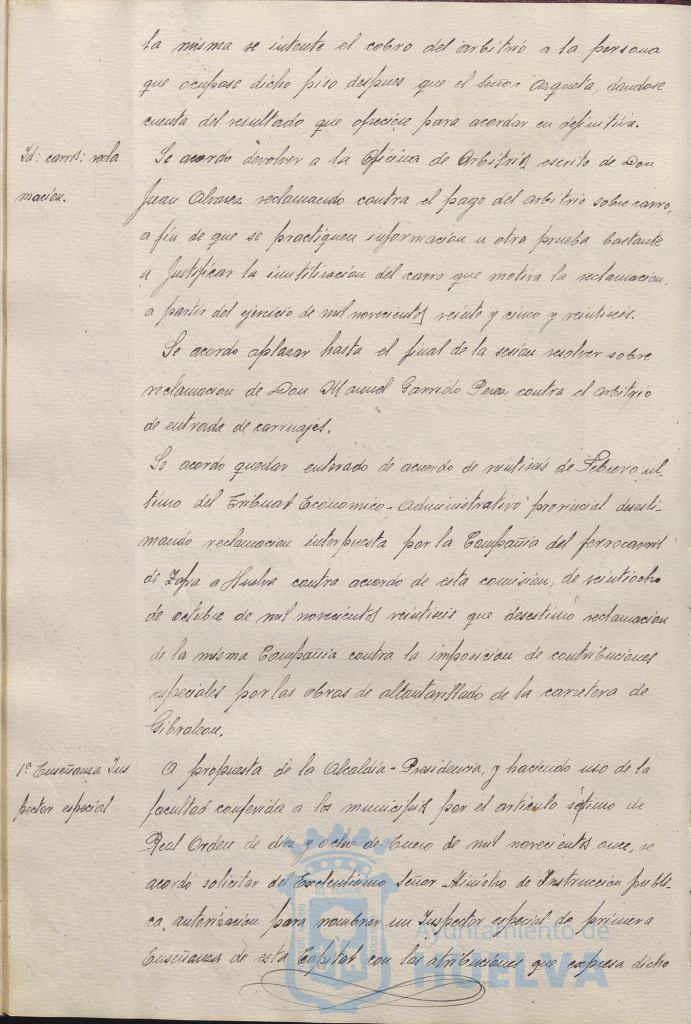 la misma se intente el cobro del arbitrio a la persona
que ocupase dicho piso despues que el señor Azqueta, dandose
cuenta del resultado que ofreciese para acordar en definitiva.
Id: carros: recla
macion.
Se acordo devolver a la Oficina de Arbitrios escrito de Don
Juan Alvarez reclamando contra el pago del arbitrio sobre carro,
a fin de que se practiquen informacion u otra prueba bastante
a Justificar la inutilizacion del carro que motiva la reclamacion,
a partir del ejercicio de mil novecientos veinte y cinco y veintiseis.
Se acordo aplazar hasta el final de la sesion resolver sobre
reclamacion de Don Manuel Garrido Perez contra el arbitrio
de entrada de carruajes.
Se acordo quedar enterado de acuerdo de veintiseis de Febrero ul-
timo del Tribunal Economico-Administrativo provincial desesti-
mando reclamacion interpuesta por la Compañia del ferrocarril
de Zafra a Huelva contra acuerdo de esta comision, de veintiocho
de octubre de mil novecientos veintiseis que desestimó reclamacion
de la misma Compañia contra la imposicion de contribuciones
especiales por las obras de alcantarillado de la carretera de
Gibraleon.
1ª Enseñanza Ins
pector especial
A propuesta de la Alcaldia-Presidencia, y haciendo uso de la
facultad conferida a los municipios por el articulo séptimo de
Real Orden de diez y ocho de Enero de mil novecientos once, se
acordó solicitar del Excelentisimo Señor Ministro de Instrucción publi-
ca, autorizacion para nombrar un Inspector especial de primera
Enseñanza de esta Capital con las atribuciones que expresa dicho
Ayuntamiento de
HUELVA